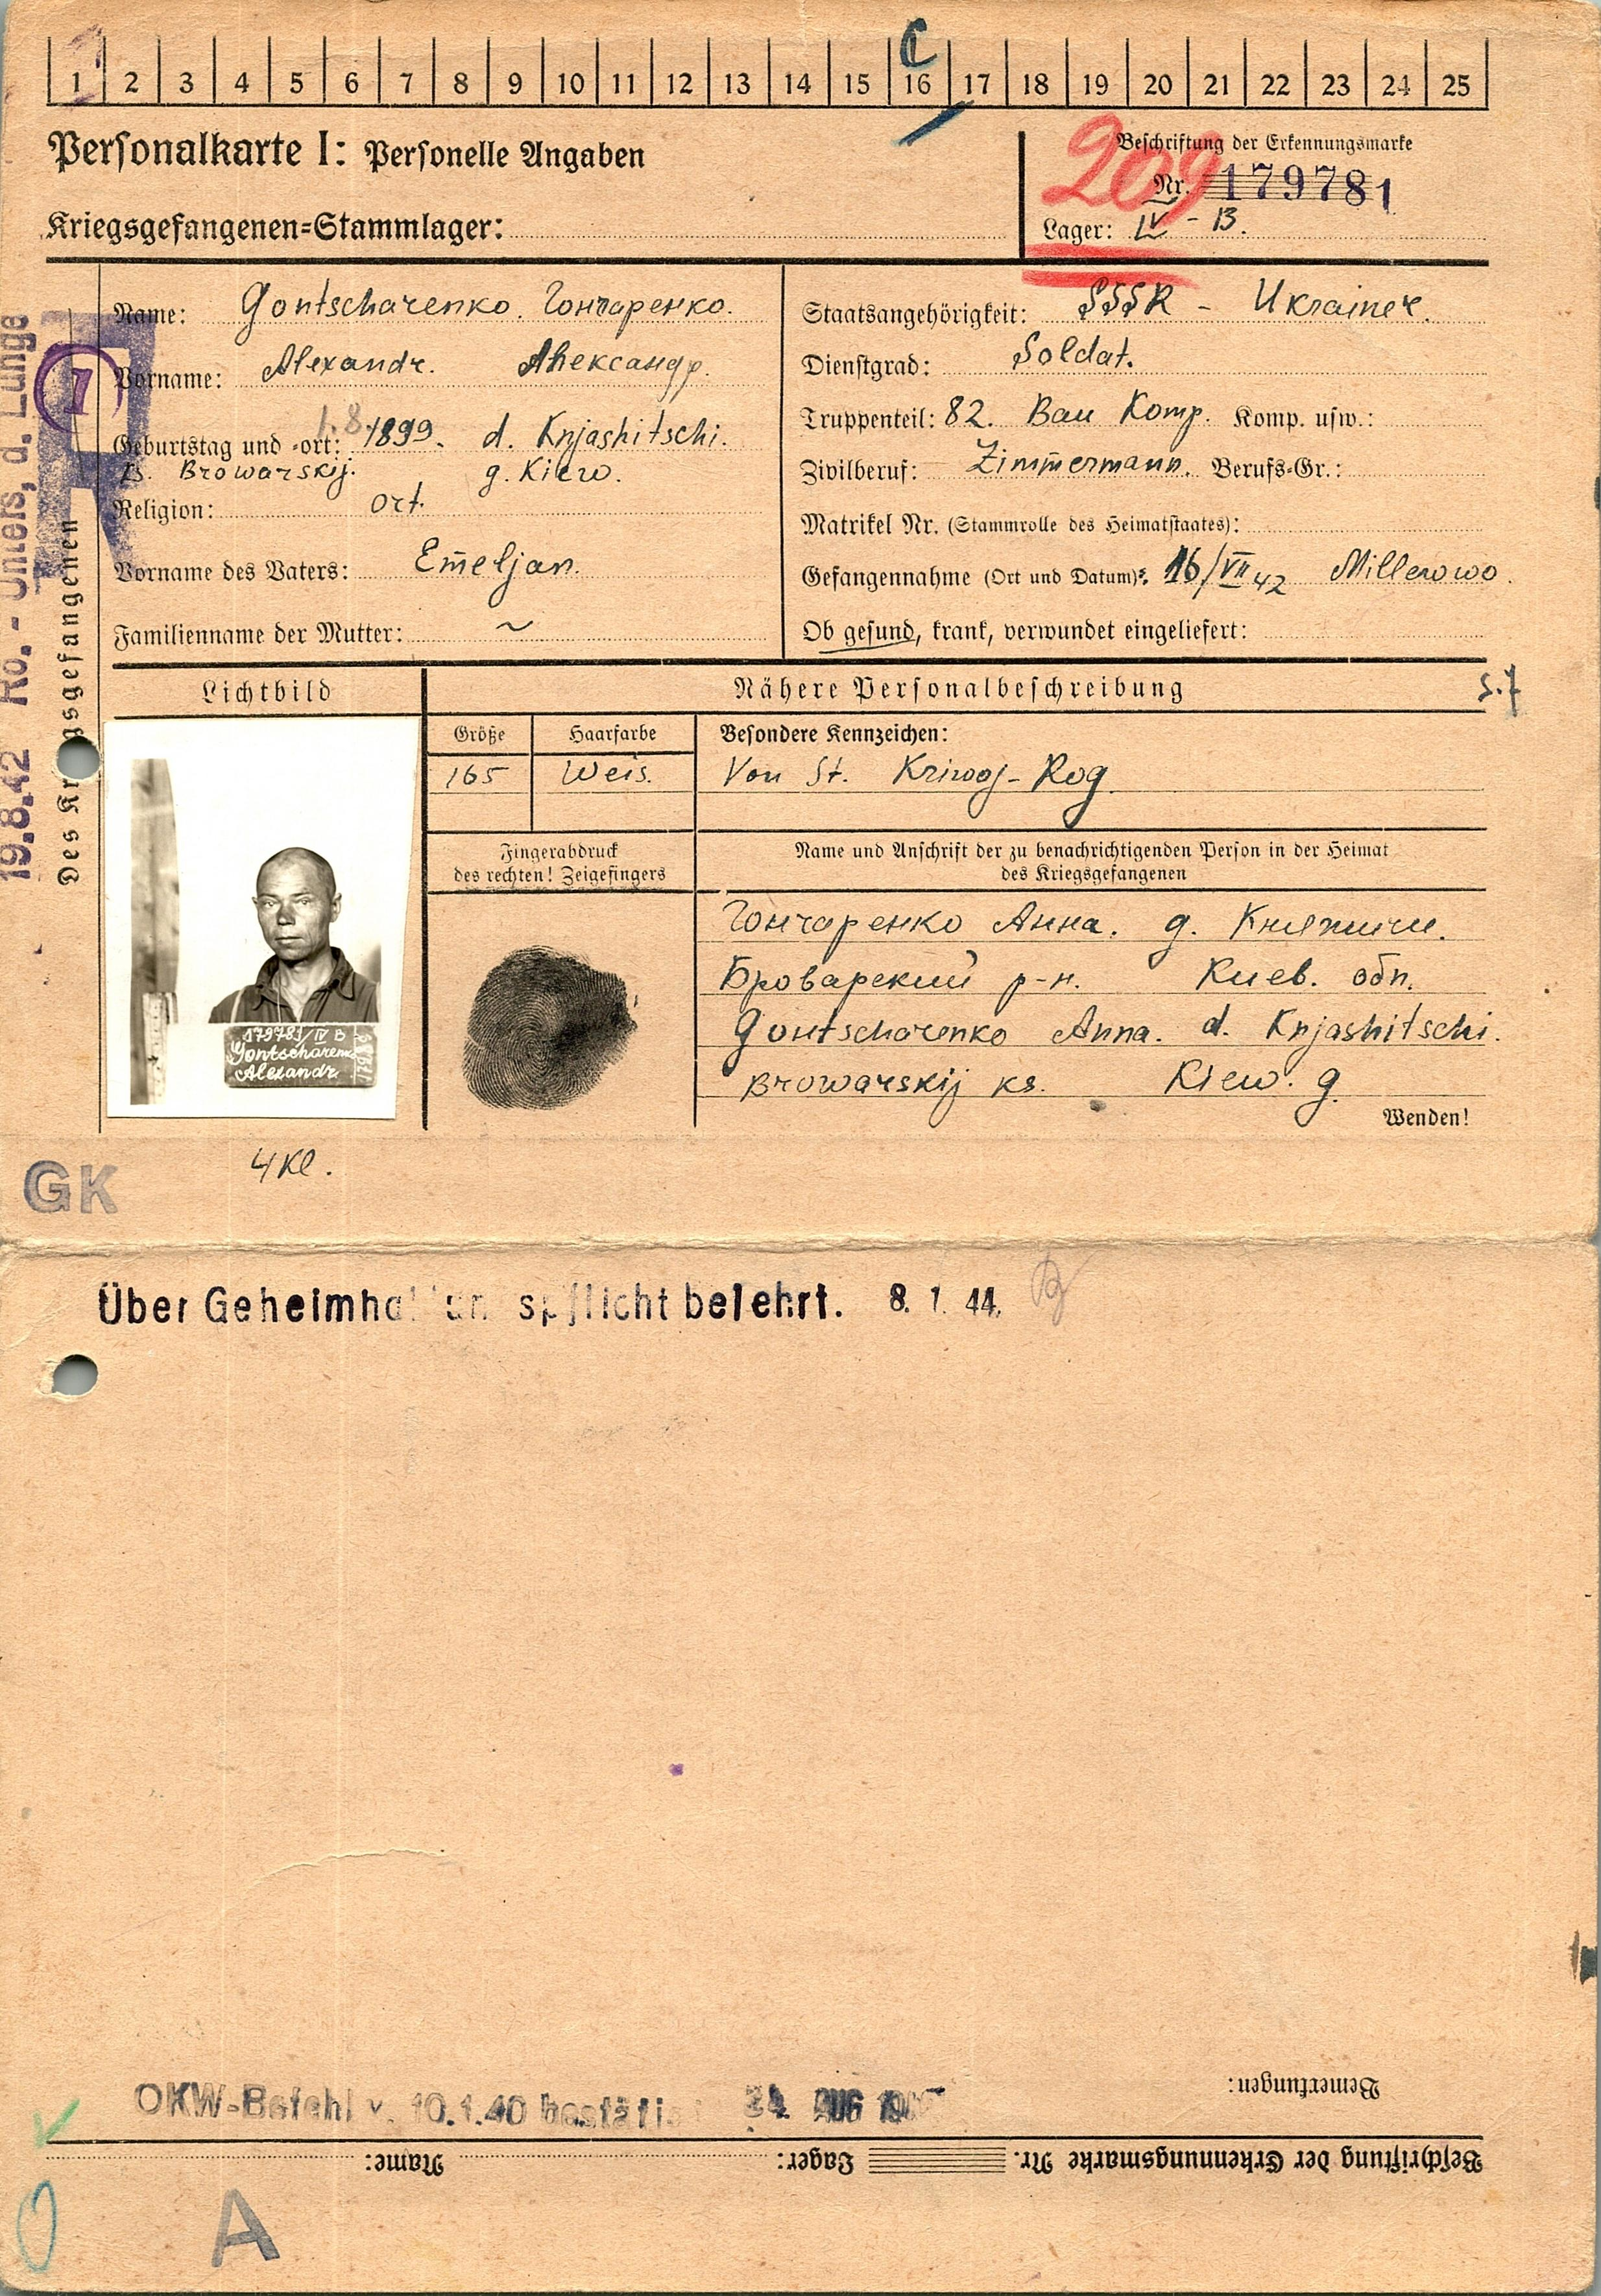 1 2 3 4 5 6 7 8 9 10 11 12 13 14 15 16 17 18 19 20 21 22 23 24 25
C
Personalkarte I: Personelle Angaben
Beschriftung der Erkennungsmarke
209
Nr. 179781
Kriegsgefangenen=Stammlager:
Lager: IV - B.
Name: Gontscharenko. Гончаренко.
Vorname: Alexandr. Александр.
Geburtstag und =ort: 1.8. 1899. d. Knjashitschi.
B. Browarskij. g. Kiew.
Religion: ort.
Vorname des Vaters: Emeljan.
Familienname der Mutter: ~
Staatsangehörigkeit: SSSR - Ukrainer.
Dienstgrad: Soldat.
Truppenteil: 82. Bau Komp. Komp. usw.:
Zivilberuf: Zimmermann. Berufs=Gr.:
Matrikel Nr. (Stammrolle des Heimatstaates):
Gefangennahme (Ort und Datum): 16/VII 42 Millerowo
Ob gesund, krank, verwundet eingeliefert:
Des Kr gsgefangenen
19.8.42 Ro. - Unters, d. Lunge
I
Lichtbild
Nähere Personalbeschreibung
Größe
Haarfarbe
Besondere Kennzeichen:
165
Weis.
Von St. Kriwoj-Rog.
Fingerabdruck
des rechten! Zeigefingers
Name und Anschrift der zu benachrichtigenden Person in der Heimat
des Kriegsgefangenen
Гончаренко Анна. д. Княжичи.
Броварский р-н. Киев. обл.
Gontscharenko Anna. d. Knjashitschi.
Browarskij ks. Kiew. g.
Wenden!
179781/IV B
Gontscharenko
Alexandr.
4 Kl.
GK
Über Geheimha un spflicht belehrt. 8. 1. 44.
Bemerkungen:
OKW-Befehl v. 10.1.40 bestätig 24. AUG
Beschriftung der Erkennungsmarke Nr. Lager: Name:
A